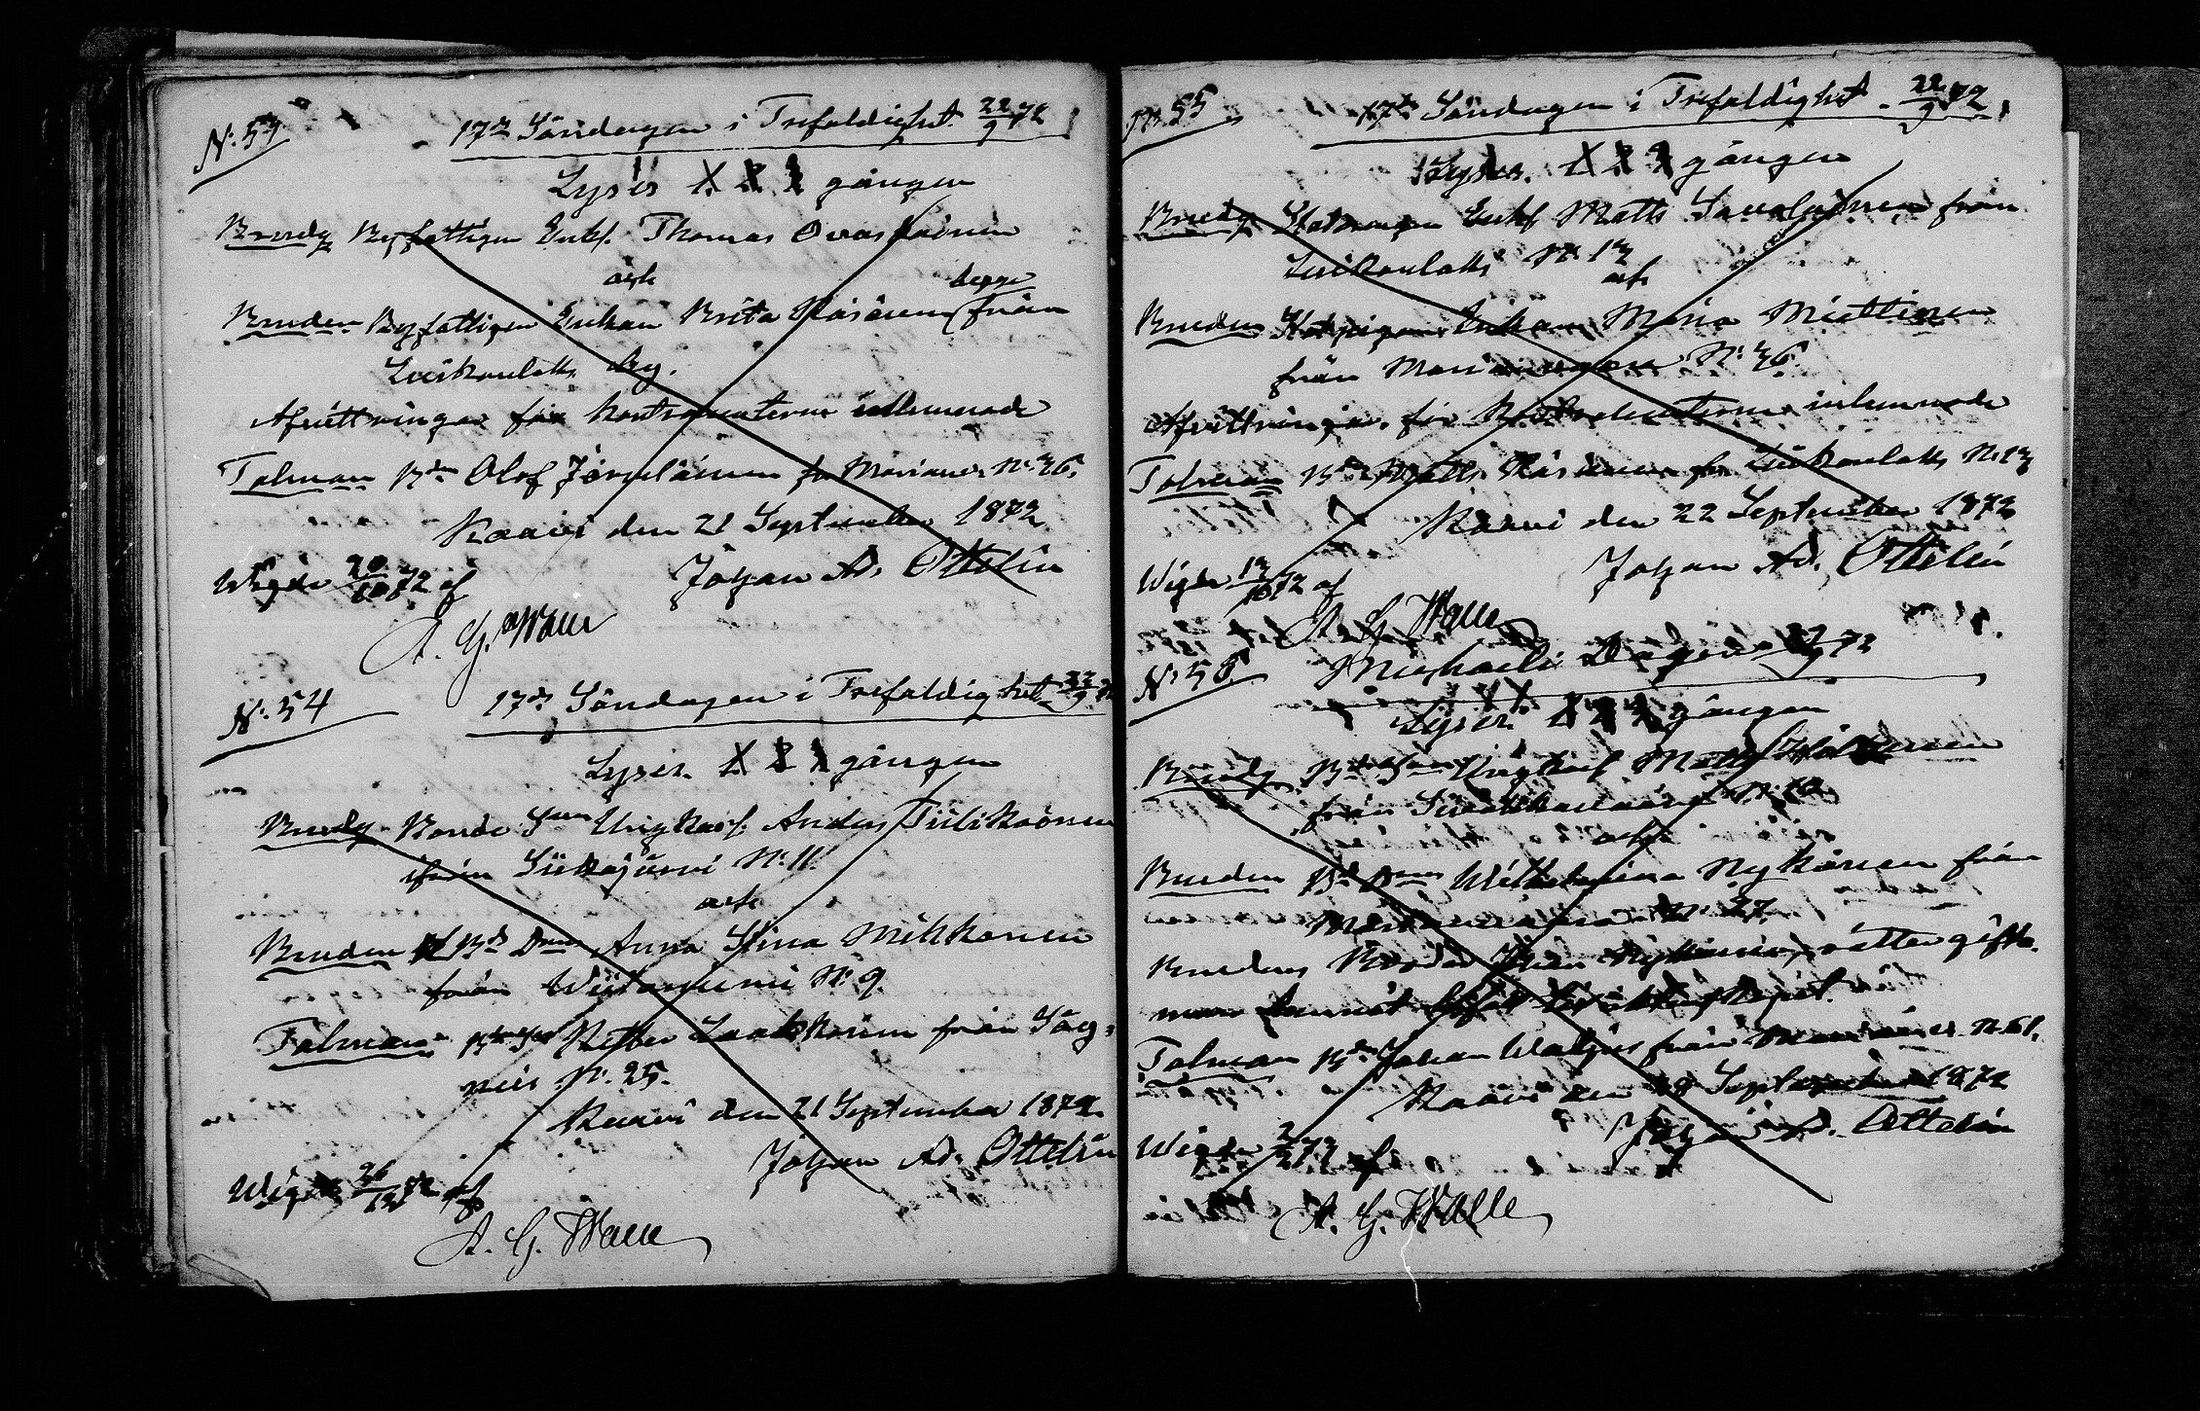 N: 53
17de Söndagen i Trefaldighet 22/9 72
Lyses 1. 2. 3 gången
Brudg Byfattigen Enkl. Thomas Ovaskainen
och
Bruden Byfattigen Enkan Brita Räsänen begge från
Luikonlaks by.
Afvittringar för Kontrahenterne inlemnade
Talman Bdn Olof Jörgiläinen fr Marianv. N: 36.
Kaavi den 21 September 1872
Johan Ad. Ottelin
Wigde 20/10 72 af
A. G. Walle
N: 54
17de Söndagen i Trefaldighet 22/9 72
Lyses. 1. 2. 3 gången
Brudg. Bonde Son Ungkarl. Anders Tiilikainen
ifrån Siikajärvi N: 11.
och
Bruden Bd Dmn Anna Stina Mikkonen
från Wiitaniemi N: 9
Talman Petter Laakkonen från Säy-
neis N: 25.
Kaavi den 21 September 1872.
Johan Ad. Ottelin
Wigde 26/12 72 af
A. G. Walle
N: 55
17de Söndagen i Trefaldighet 22/9 72
Lyses. 1. 2. 3 gången
Brudg. Enkl Matts Savolainen från
Luikonlaks N: 13
och
Bruden Enkan Maria Miettinen
från N: 36.
Afvittringar för Kontrahenterne inlemnade
Talman Bdn Matts Räsänen fr Luikonlaks N: 13
Kaavi den 22 September 1872
Johan Ad. Ottelin
Wigde 13/10 72 af
A. G. Walle
N: 56
Michaeli Dagen 29/9 72
Lyses. 1 2 3 gången
Brudg. Bde Son Ungkarl Matts
från N: 10
och
Bruden Bd Dmn Wilhelmina Nykänen från
N: 27.
Brudens Broder Nykänen, rätter gifto-
man
Talman Bdn Johan Waljus från N: 61.
Kaavi den 28 September 1872
Johan Ad. Ottelin
Wigde 2/2 73 af
A. G. Walle